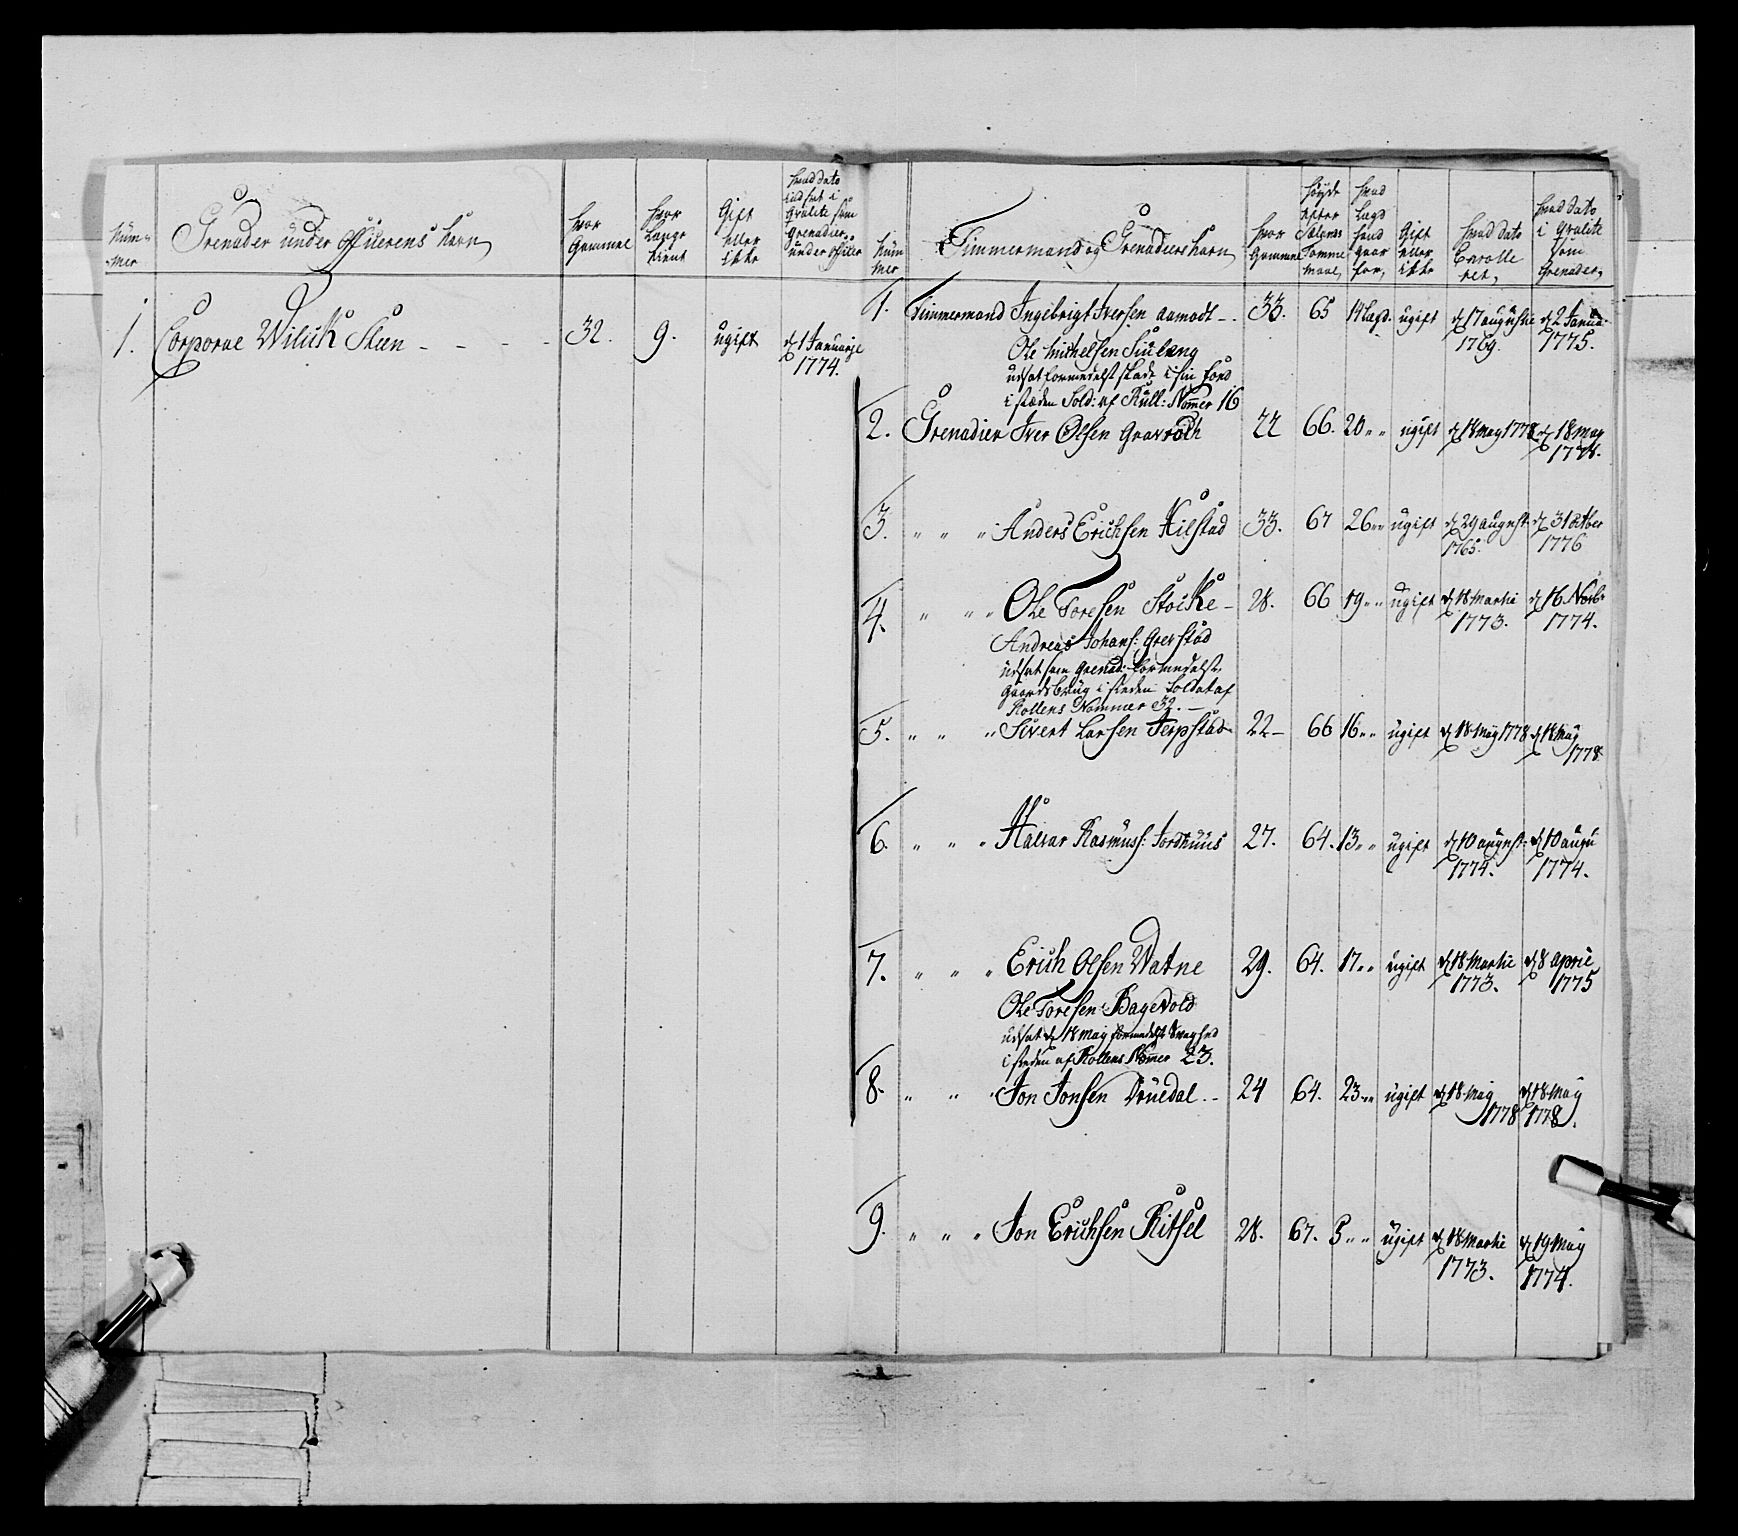 Num-
-mer
Grenader under officerens Navn
hvor
Gammel
hvor
Længe
tient
Gift
eller
ikke
hvad dato
indsat i
Qvalite som
Grenadier
under officer
1. Corporal Wilich Steen - - - - 32. 9. ugift d 1 Januarje
1774.
Num
mer
Timmermand og Grenadiers navn
hvor
Gammel
høyde
efter
Sælands
Tomme
maal,
hvad
Lægd
hand
staar
for,
Gift
eller
ikke
hvad dato
Enrolle
ret,
hvad dato
i Qvalite
som
Grenader,
1. Timmermand Ingebrigt Iversen Aamodt - - 33. 65 14 Lægd. ugift d 17 augustie d 2 Janua.
1769. 1775.
Ole Michelsen
udsat formedelst skade i sin
i stæden Sold: af Rull: Nommer 16
2. Grenadier Iver Olsen Gravroth 22 66. 20 " " ugift d 18 May 1778 d 18 may
1778.
3. " " " Anders Erichsen Kilstad 33. 67 26 " " ugift d 29 august d 31 octber
1765. 1776
4. " " " Ole Toresen Stocke - 28. 66 19 " " ugift d 18 Martie d 16 Novb:
1773. 1774.
Andreas Johans: Gierstad
udsat som Grenad: formedelst
Gaardsbrug i steden Soldat af
Rollens Nommer 32. -
5. " " " Sivert Larsen Terpstad 22 - 66 16 " " ugift d 18 May 1778 d 18 May
1778
6. " " " Halvar Rasmuss: Jordhuus 27. 64. 13 " " ugift d 10 august d 10 augu
1774. 1774.
7. " " " Erich Olsen Watne 29. 64. 17 " " ugift d 18 Martie d 8 April
1773. 1775
Ole Toresen Bagevold
udsat d 18 may formedelst Svaghed
i steden af Rollens Nommer 23.
8. " " " Jon Jonsen Druedal - - 24 64. 23 " " ugift d 18 May d 18 May
1778 1778.
9. " " " Jon Erichsen Kitsel 28. 67. 5 " " ugift d 18 Martie d 19 May
1773. 1774.